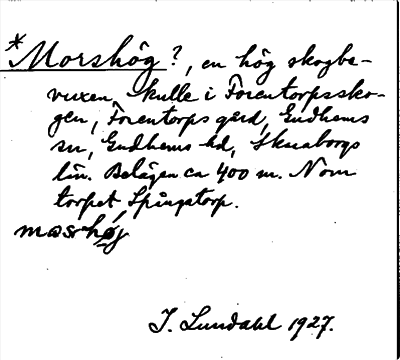 *Morshög?, en hög skogbe-
vuxen kulle i Forentorpssko-
gen, Forentorps gård, Gudhems
sn, Gudhems hd, Skaraborgs
län. Belägen ca 400 m. N om
torpet Spångstorp.
mɷrshøj
I. Lundahl 1927.